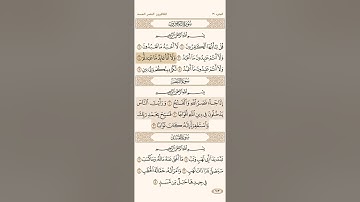 سُورَةُ الكَافِرُونَ
بِسْمِ اللَّهِ الرَّحْمَٰنِ الرَّحِيمِ
قُلْ يَا أَيُّهَا الْكَافِرُونَ ١ لَا أَعْبُدُ مَا تَعْبُدُونَ ٢
وَلَا أَنتُمْ عَابِدُونَ مَا أَعْبُدُ ٣
وَلَا أَنَا عَابِدٌ مَّا عَبَدتُّمْ ٤
وَلَا أَنتُمْ عَابِدُونَ مَا أَعْبُدُ ٥ لَكُمْ دِينُكُمْ وَلِيَ دِينِ ٦
سُورَةُ النَّصْرِ
بِسْمِ اللَّهِ الرَّحْمَٰنِ الرَّحِيمِ
إِذَا جَاءَ نَصْرُ اللَّهِ وَالْفَتْحُ ١ وَرَأَيْتَ النَّاسَ
يَدْخُلُونَ فِي دِينِ اللَّهِ أَفْوَاجًا ٢ فَسَبِّحْ بِحَمْدِ رَبِّكَ
وَاسْتَغْفِرْهُ إِنَّهُ كَانَ تَوَّابًا ٣
سُورَةُ المَسَدِ
بِسْمِ اللَّهِ الرَّحْمَٰنِ الرَّحِيمِ
تَبَّتْ يَدَا أَبِي لَهَبٍ وَتَبَّ ١ مَا أَغْنَىٰ عَنْهُ مَالُهُ وَمَا كَسَبَ ٢
سَيَصْلَىٰ نَارًا ذَاتَ لَهَبٍ ٣ وَامْرَأَتُهُ حَمَّالَةَ الْحَطَبِ ٤
فِي جِيدِهَا حَبْلٌ مِّن مَّسَدٍ ٥